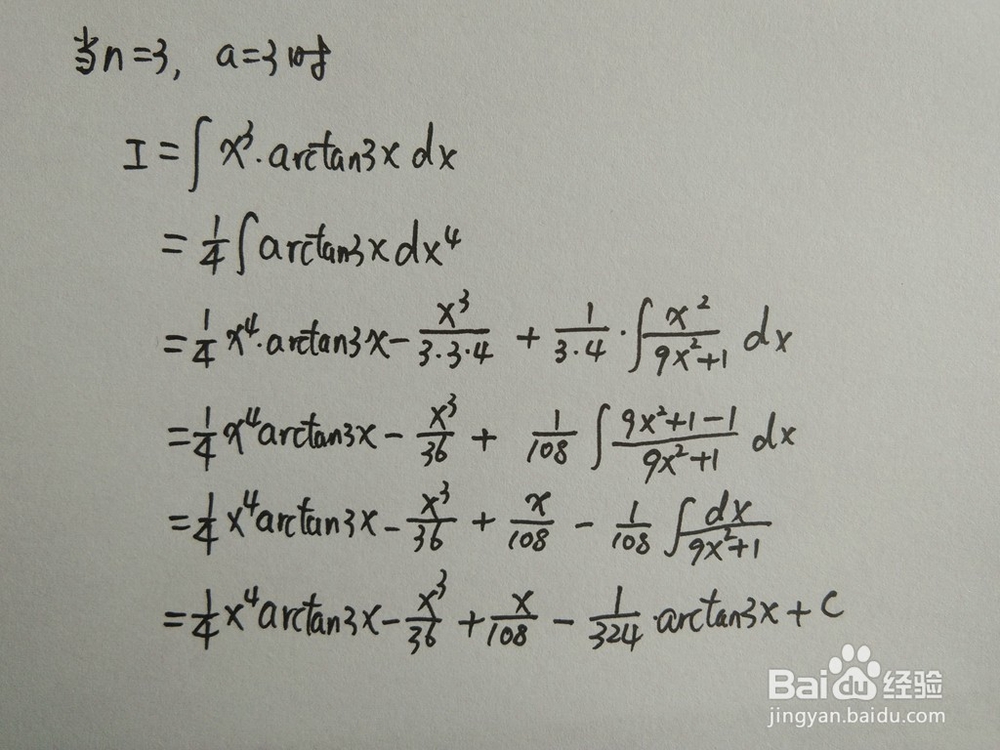 当n=3, a=3时
I=∫x³·arctan3x dx
=1/4∫arctan3x dx⁴
=1/4 x⁴·arctan3x-x³/(3·3·4)+1/(3·4)·∫x²/(9x²+1) dx
=1/4 x⁴arctan3x-x³/36+1/108∫(9x²+1-1)/(9x²+1) dx
=1/4 x⁴arctan3x-x³/36+x/108-1/108∫dx/(9x²+1)
=1/4 x⁴arctan3x-x³/36+x/108-1/324·arctan3x+C
Baidu经验
jingyan.baidu.com